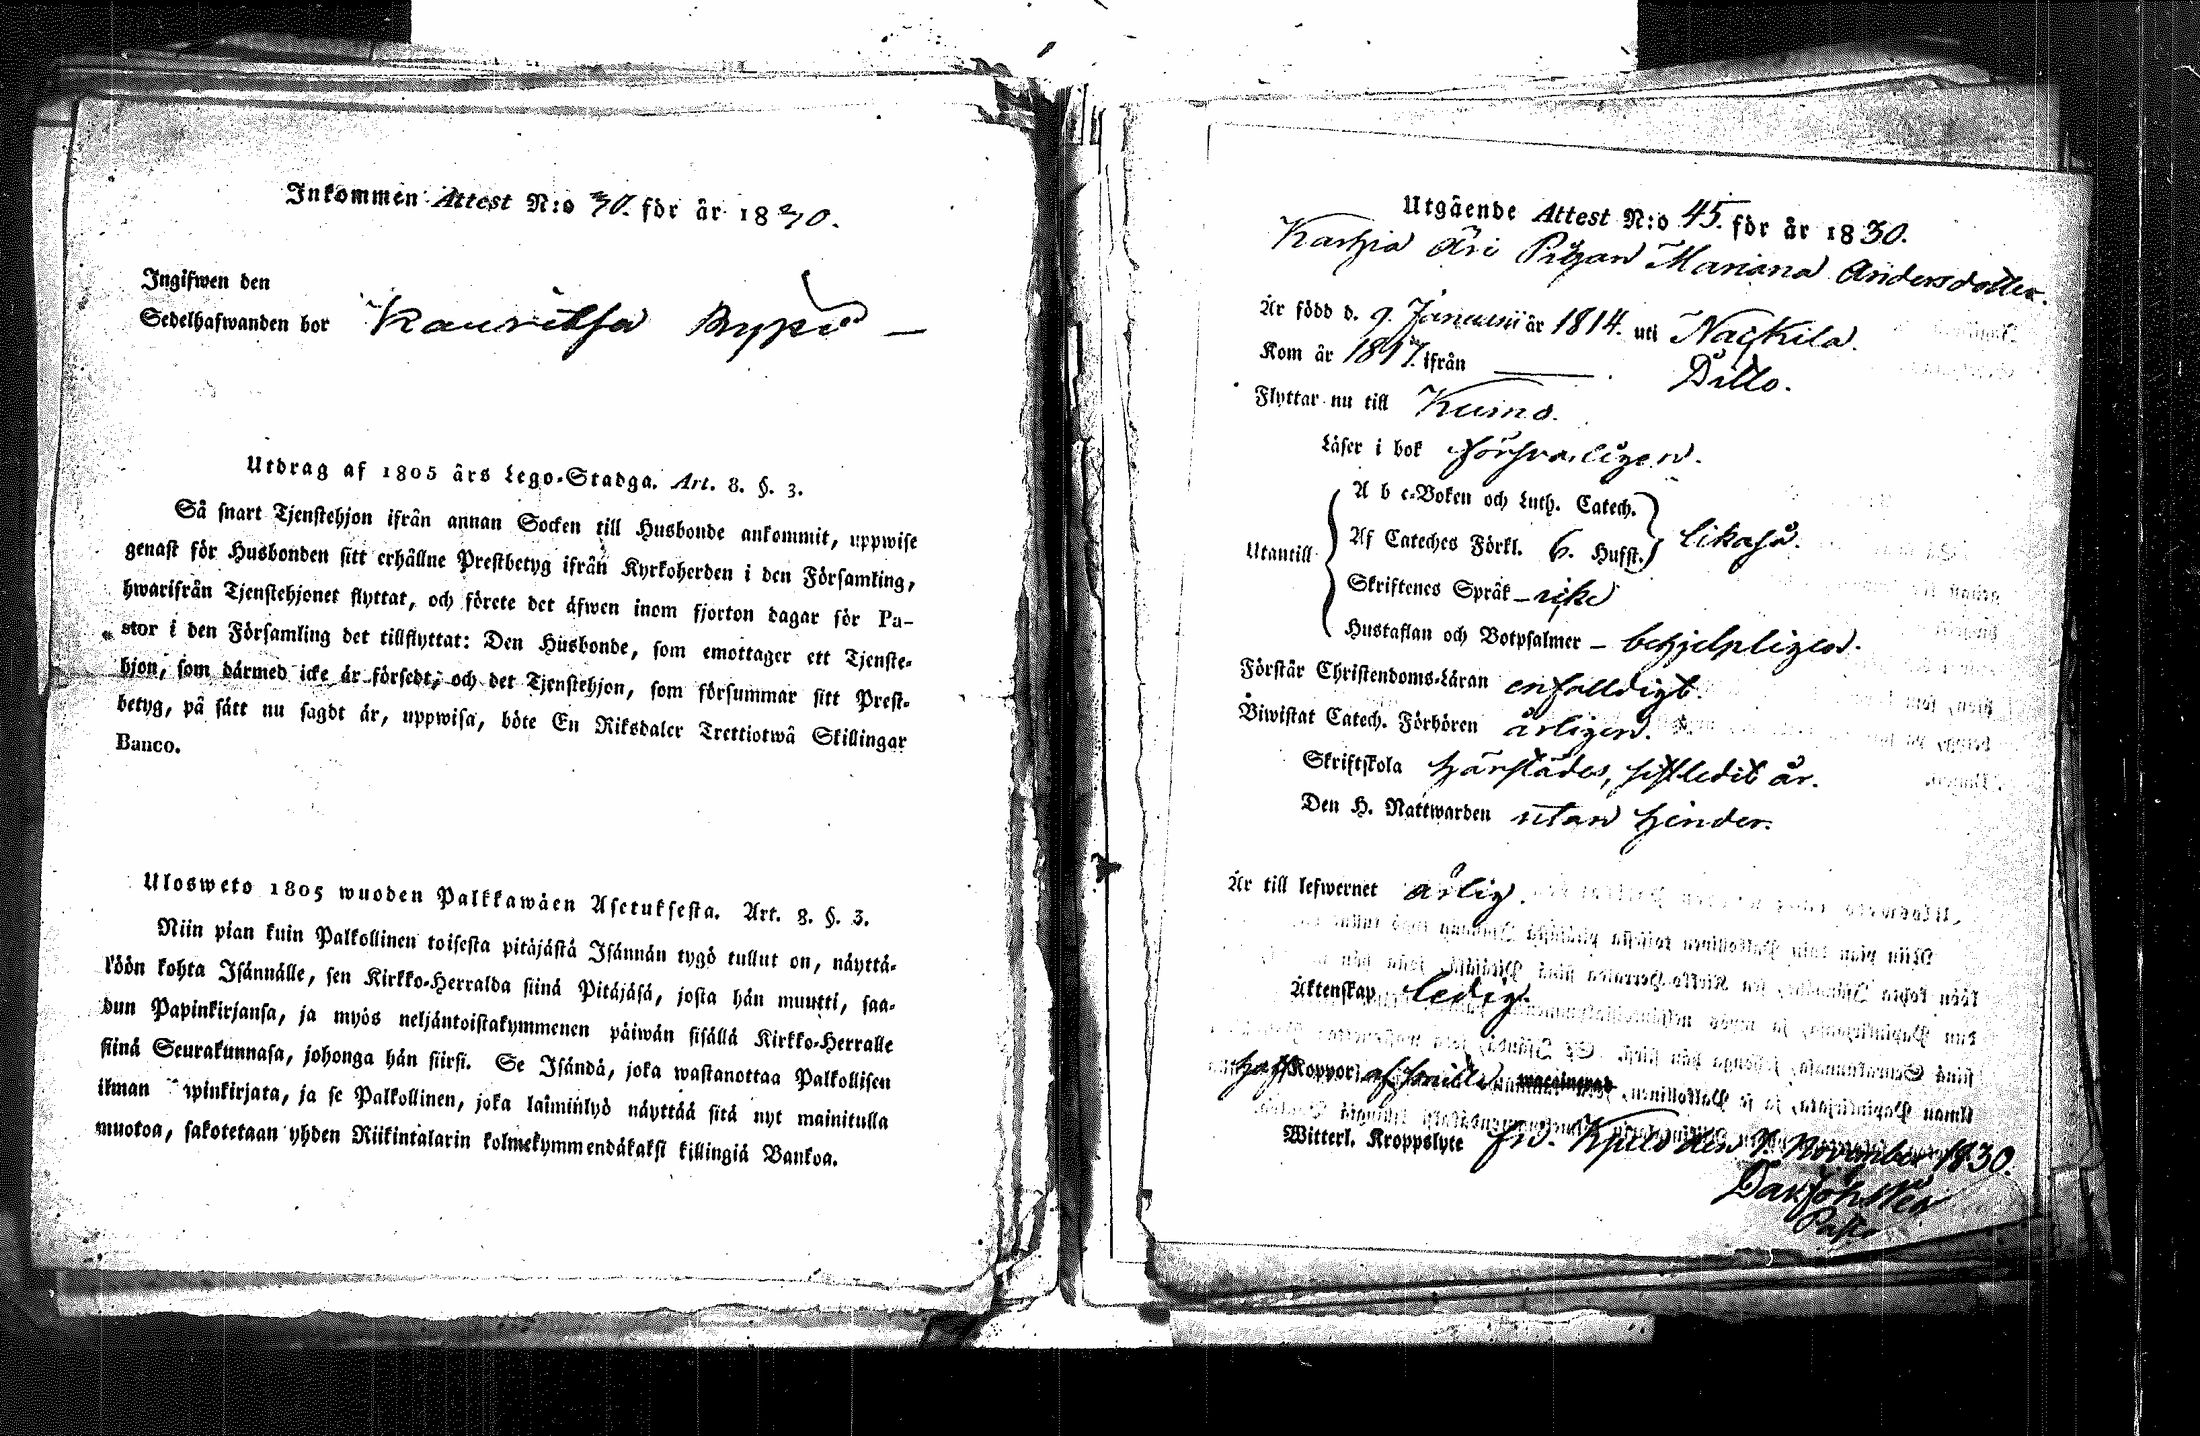 Inkommen Attest N:o 30. för år 1830.
Ingifwen den
Sedelhafwanden bor Kauvitsa Byyu
Utdrag af 1805 års Lego-Stadga. Art. 8. §. 3.
Så snart Tjenstehjon ifrån annan Socken till Husbonde ankommit, uppwise
genast för Husbonden sitt erhållne Prestbetyg ifrån Kyrkoherden i den Församling,
hwarifrån Tjenstehjonet flyttat, och förete det äfwen inom fjorton dagar för Pa-
stor i den Församling det tillflyttat: Den Husbonde, som emottager ett Tjenste-
hjon, som därmed icke är försedt, och det Tjenstehjon, som försummar sitt Prest-
betyg, på sätt nu sagdt är, uppwisa, böte En Riksdaler Trettiotwå Skillingar
Banco.
Ulosweto 1805 wuoden Palkkawäen Asetuksesta. Art. 8. §. 3.
Niin pian kuin Palkollinen toisesta pitäjästä Isännän tygö tullut on, näyttä-
köön kohta Isännälle, sen Kirkko-Herralda siinä Pitäjäsä, josta hän muutti, saa-
dun Papinkirjansa, ja myös neljäntoistakymmenen päiwän sisällä Kirkko-Herralle
siinä Seurakunnasa, johonga hän siirsi. Se Isändä, joka wastanottaa Palkollisen
ilman apinkirjata, ja se Palkollinen, joka laiminlyö näyttää sitä nyt mainitulla
muotoa, sakotetaan yhden Riikintalarin kolmekymmendäkaksi killingiä Bankoa.
Utgående Attest N:o 45. för år 1830.
Äri Pigan Mariana Andersdotter.
Är född d. 9. Januarii år 1814. uti Nackila.
Kom år 1817. ifrån Ditto.
Flyttar nu till Kumo.
Läser i bok försvarligen.
A b c-Boken och Luth. Catech.
Utantill Af Cateches Förkl. 6. Hufst. likaså.
Skriftenes Språk -
Hustaflan och Botpsalmer - behjelpligen.
Förstår Christendoms-Läran enfalldigt.
Biwistat Catech. Förhören årligen.
Skriftskola härstädes, sistledit år.
Den H. Nattwarden utan hinder.
Är till lefwernet ärlig.
Äktenskap ledig.
haft Koppor, waccinerad
Witterl. Kroppslyte fri. Kjulo den 7. November 1830.
Pastor